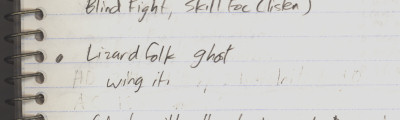 Blind Fight, Skill foc (listen)
• Lizard folk ghost
wing it.